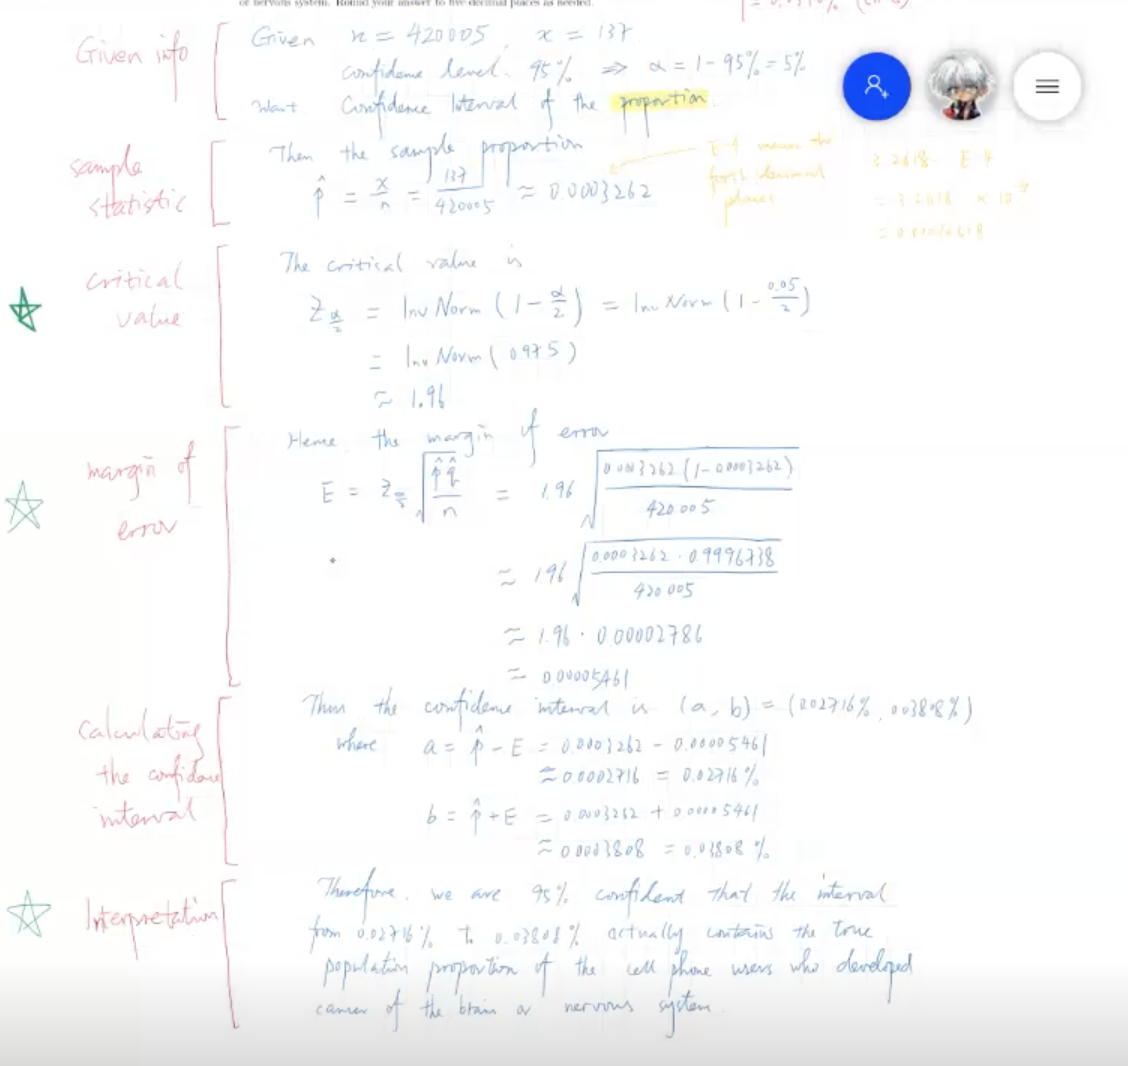 or nervous system. Round your answer to five decimal places as needed.
Given info
Given n = 420005, x = 137
confidence level. 95% ⇒ α = 1 - 95% = 5%
Want Confidence Interval of the proportion.
sample statistic
Then the sample proportion
p̂ = x/n = 137/420005 ≈ 0.0003262
E-4 means the
places
critical value
The critical value is
Z_{α/2} = InvNorm (1 - α/2) = InvNorm (1 - 0.05/2)
= InvNorm (0.975)
≈ 1.96
margin of error
Hence, the margin of error
E = Z_{α/2} √(p̂ q̂ / n) = 1.96 √(0.0003262 (1 - 0.0003262) / 420005)
≈ 1.96 √(0.0003262 · 0.9996738 / 420005)
≈ 1.96 · 0.00002786
≈ 0.00005461
Calculating the confidence interval
Thus the confidence interval is (a, b) = (0.02716%, 0.03808%)
where a = p̂ - E = 0.0003262 - 0.00005461
≈ 0.0002716 = 0.02716%
b = p̂ + E = 0.0003262 + 0.00005461
≈ 0.0003808 = 0.03808%
Interpretation
Therefore, we are 95% confident that the interval
from 0.02716% to 0.03808% actually contains the true
population proportion of the cell phone users who developed
cancer of the brain or nervous system.